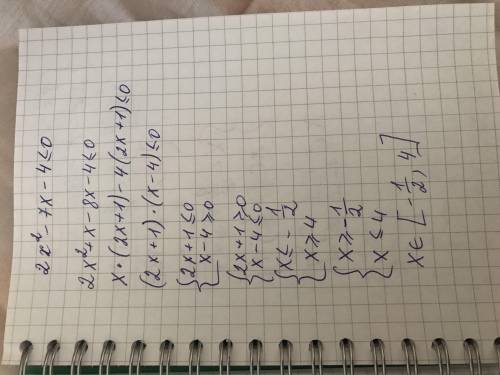 2x² - 7x - 4 ≤ 0
2x² + x - 8x - 4 ≤ 0
x · (2x + 1) - 4(2x + 1) ≤ 0
(2x + 1) · (x - 4) ≤ 0
{ 2x + 1 ≤ 0
x - 4 ≥ 0
{ 2x + 1 ≥ 0
x - 4 ≤ 0
{ x ≤ - 1/2
x ≥ 4
{ x ≥ - 1/2
x ≤ 4
x ∈ [ - 1/2, 4 ]